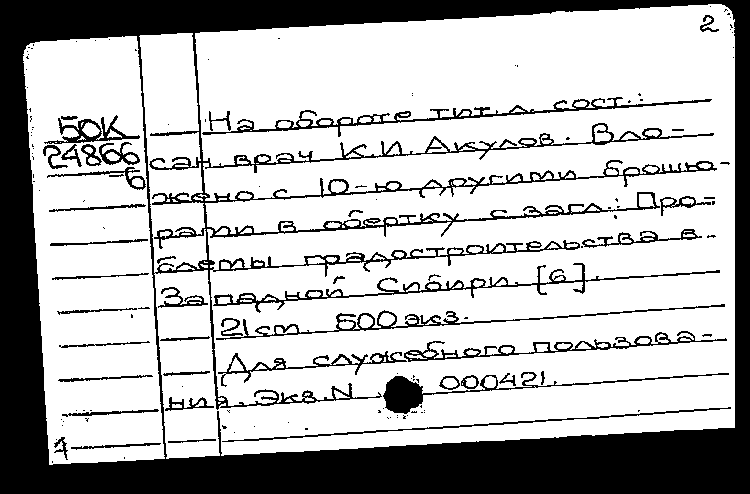 2
БОК
24866
=6
На обороте тит. л. сост.:
сан. врач К.И. Акулов. Вло-
жено с 10-ю другими брошю-
рами в обертку с загл.: Про-
блемы градостроительства в
Западной Сибири. [6].
21 см. 500 экз.
Для служебного пользова-
ния. Экз. N 000421.